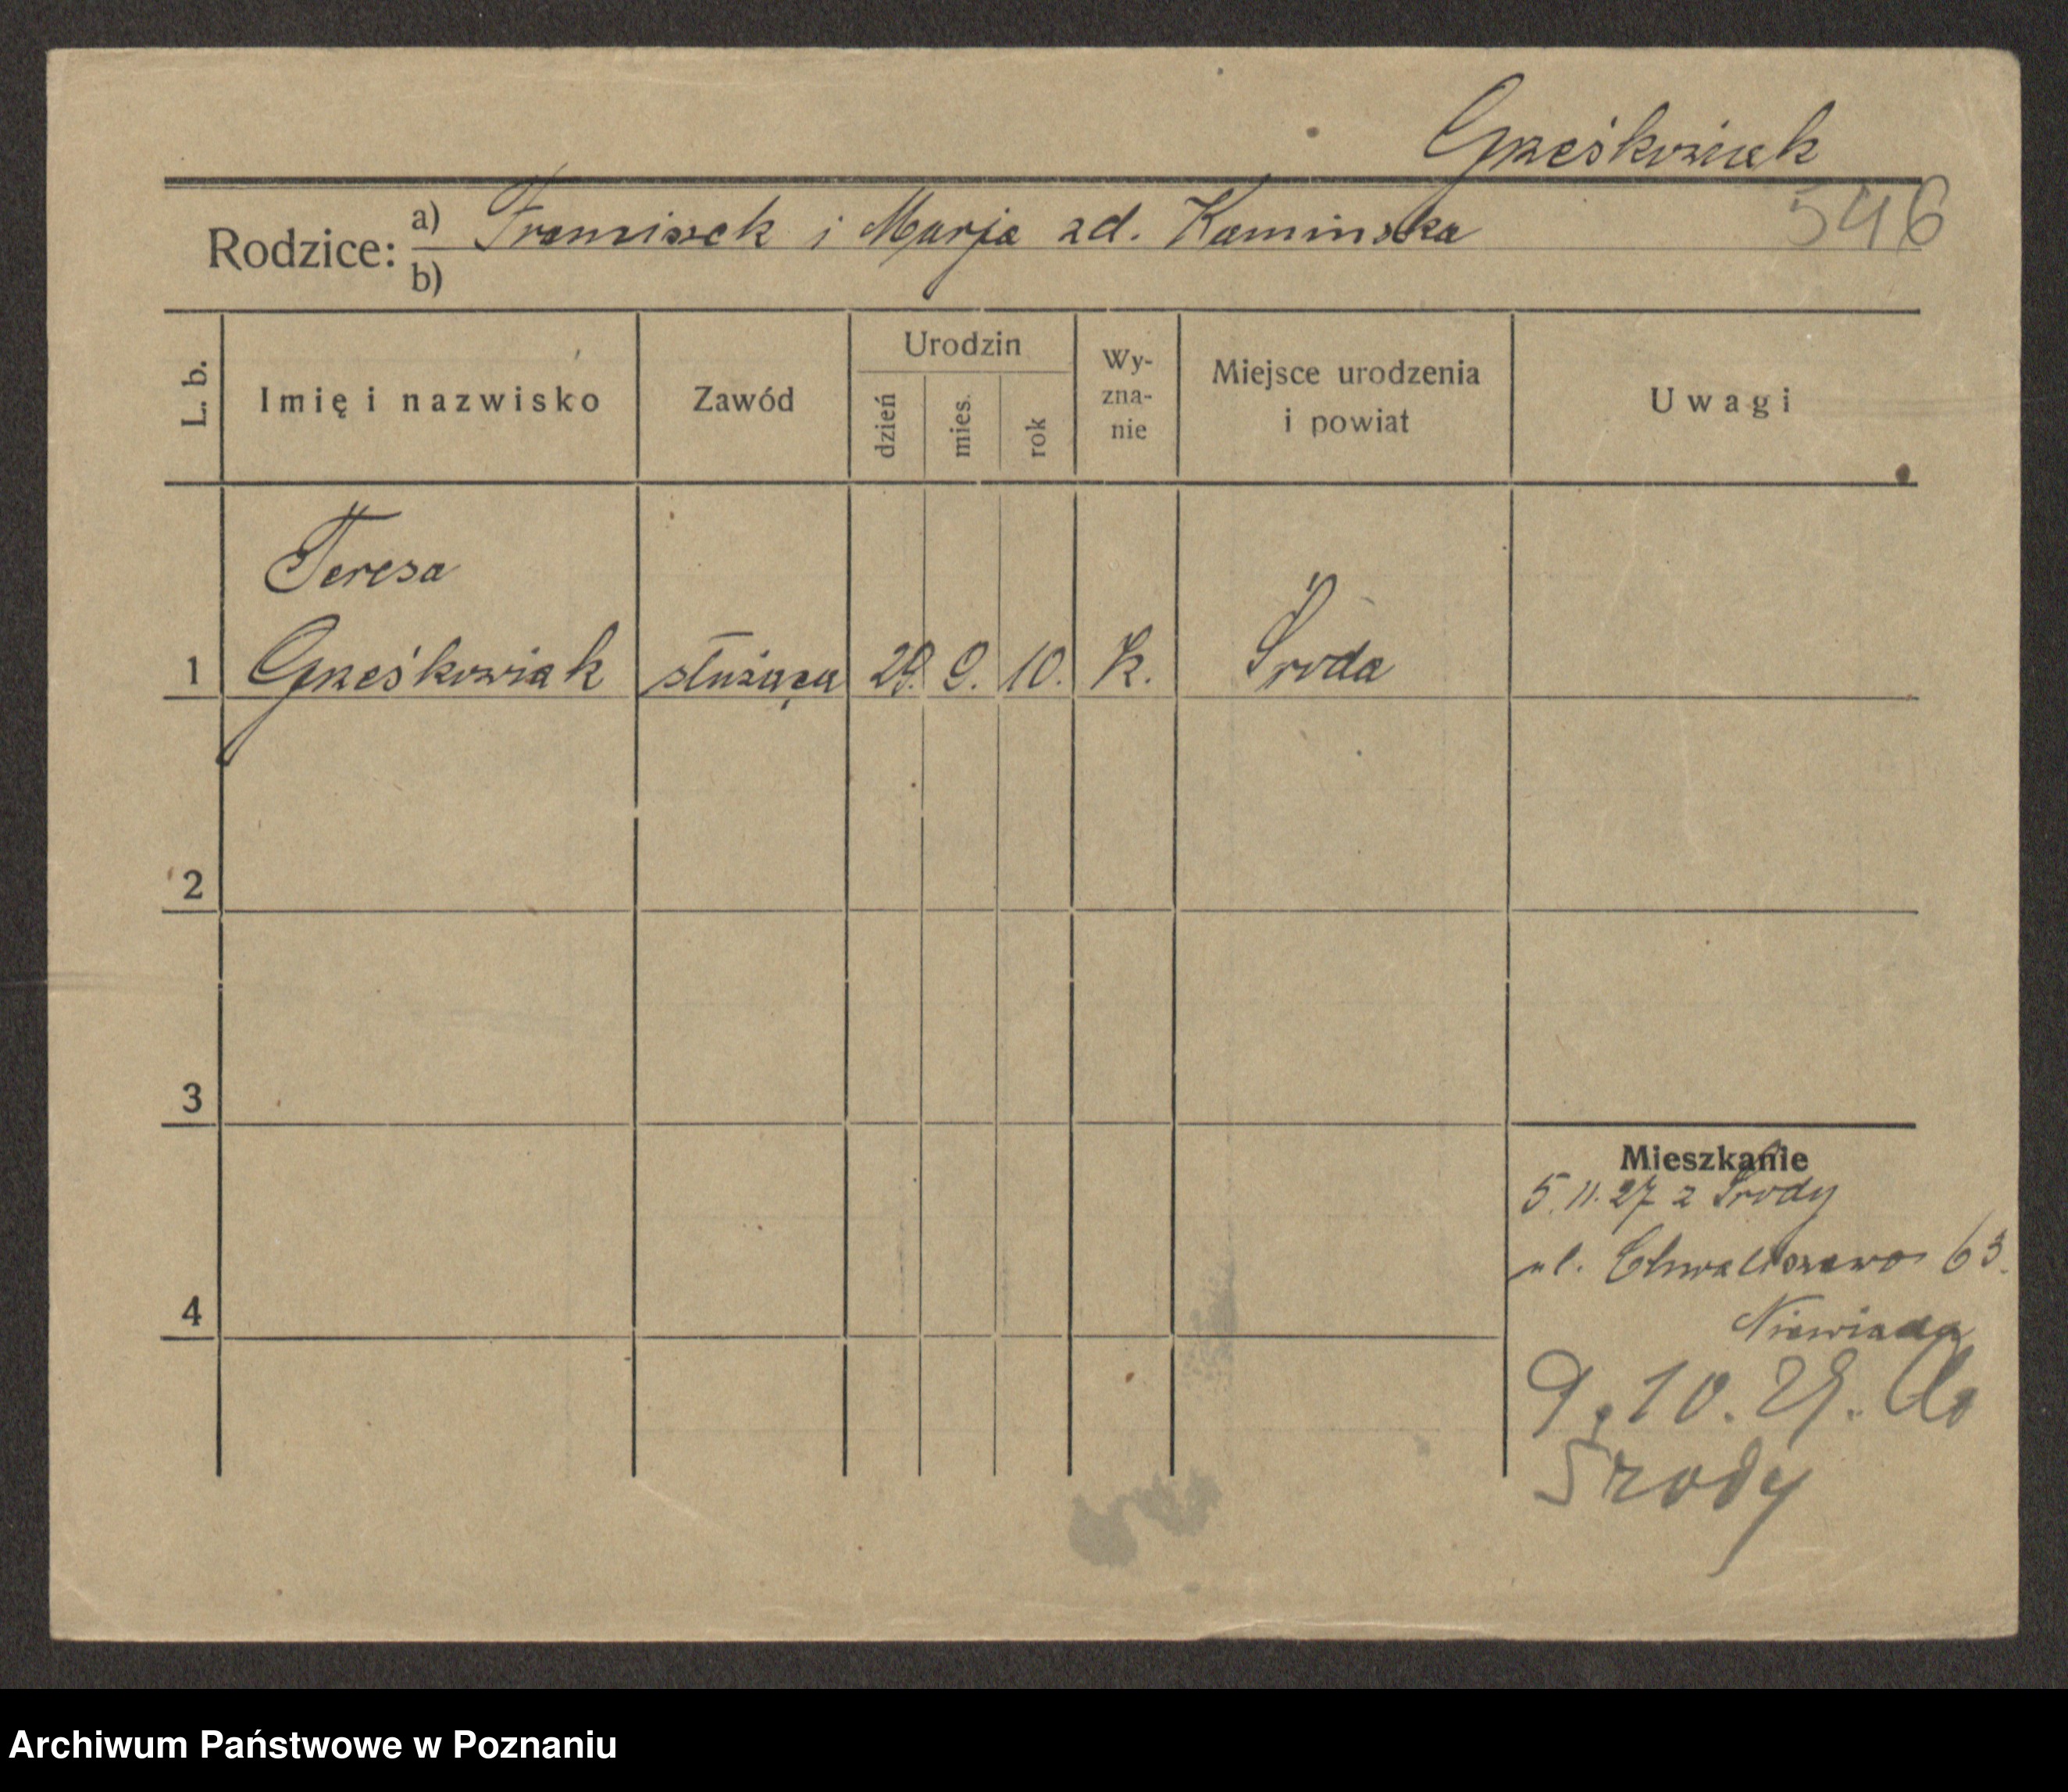 Grześkowiak
546
Rodzice: a) Franciszek i Marja zd. Kaminska
b)
L. b.
Imię i nazwisko
Zawód
Urodzin
dzień
mies.
rok
Wy-
zna-
nie
Miejsce urodzenia
i powiat
Uwagi
Teresa
1 Grześkowiak służąca 29. 9. 10. K. Środa
2
3
4
Mieszkanie
5.11.27 z Środy
ul. Chwaliszewo 63.
Niewiada
9.10.29. do
Środy
Archiwum Państwowe w Poznaniu